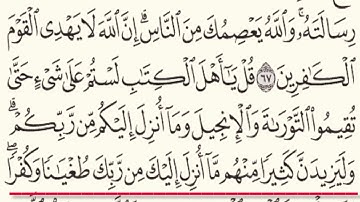 رِسَالَتَهُۥ وَٱللَّهُ يَعْصِمُكَ مِنَ ٱلنَّاسِ إِنَّ ٱللَّهَ لَا يَهْدِى ٱلْقَوْمَ
ٱلْكَٰفِرِينَ ٦٧ قُلْ يَٰٓأَهْلَ ٱلْكِتَٰبِ لَسْتُمْ عَلَىٰ شَىْءٍ حَتَّىٰ
تُقِيمُوا۟ ٱلتَّوْرَىٰةَ وَٱلْإِنجِيلَ وَمَآ أُنزِلَ إِلَيْكُم مِّن رَّبِّكُمْ ۗ
وَلَيَزِيدَنَّ كَثِيرًا مِّنْهُم مَّآ أُنزِلَ إِلَيْكَ مِن رَّبِّكَ طُغْيَٰنًا وَكُفْرًا ۖ